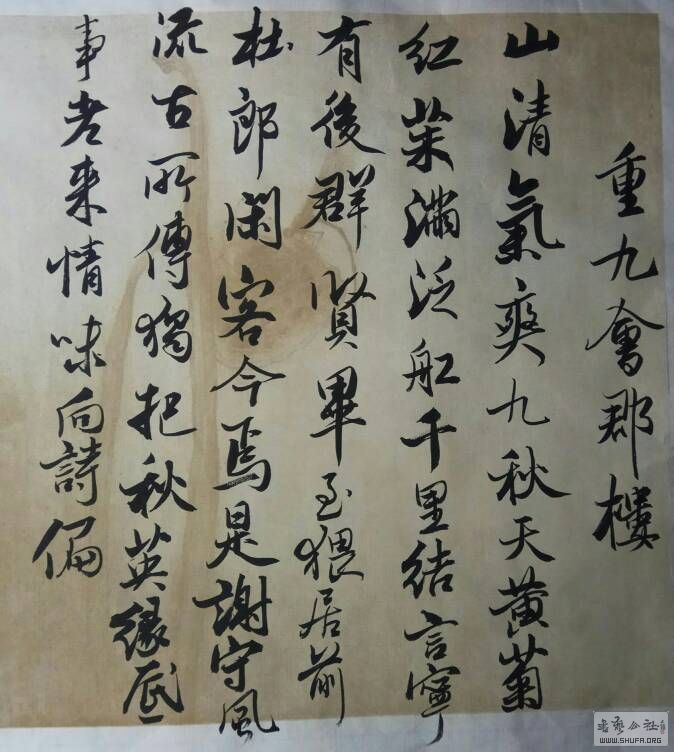 重九會郡樓
山清氣爽九秋天黄菊
紅茱滿泛船千里結言寧
有後群賢畢至猥居前
杜郎閑客今焉是謝守風
流古所傳獨把秋英緣底
事老来情味向詩偏
书艺公社
WWW.SHUFA.ORG